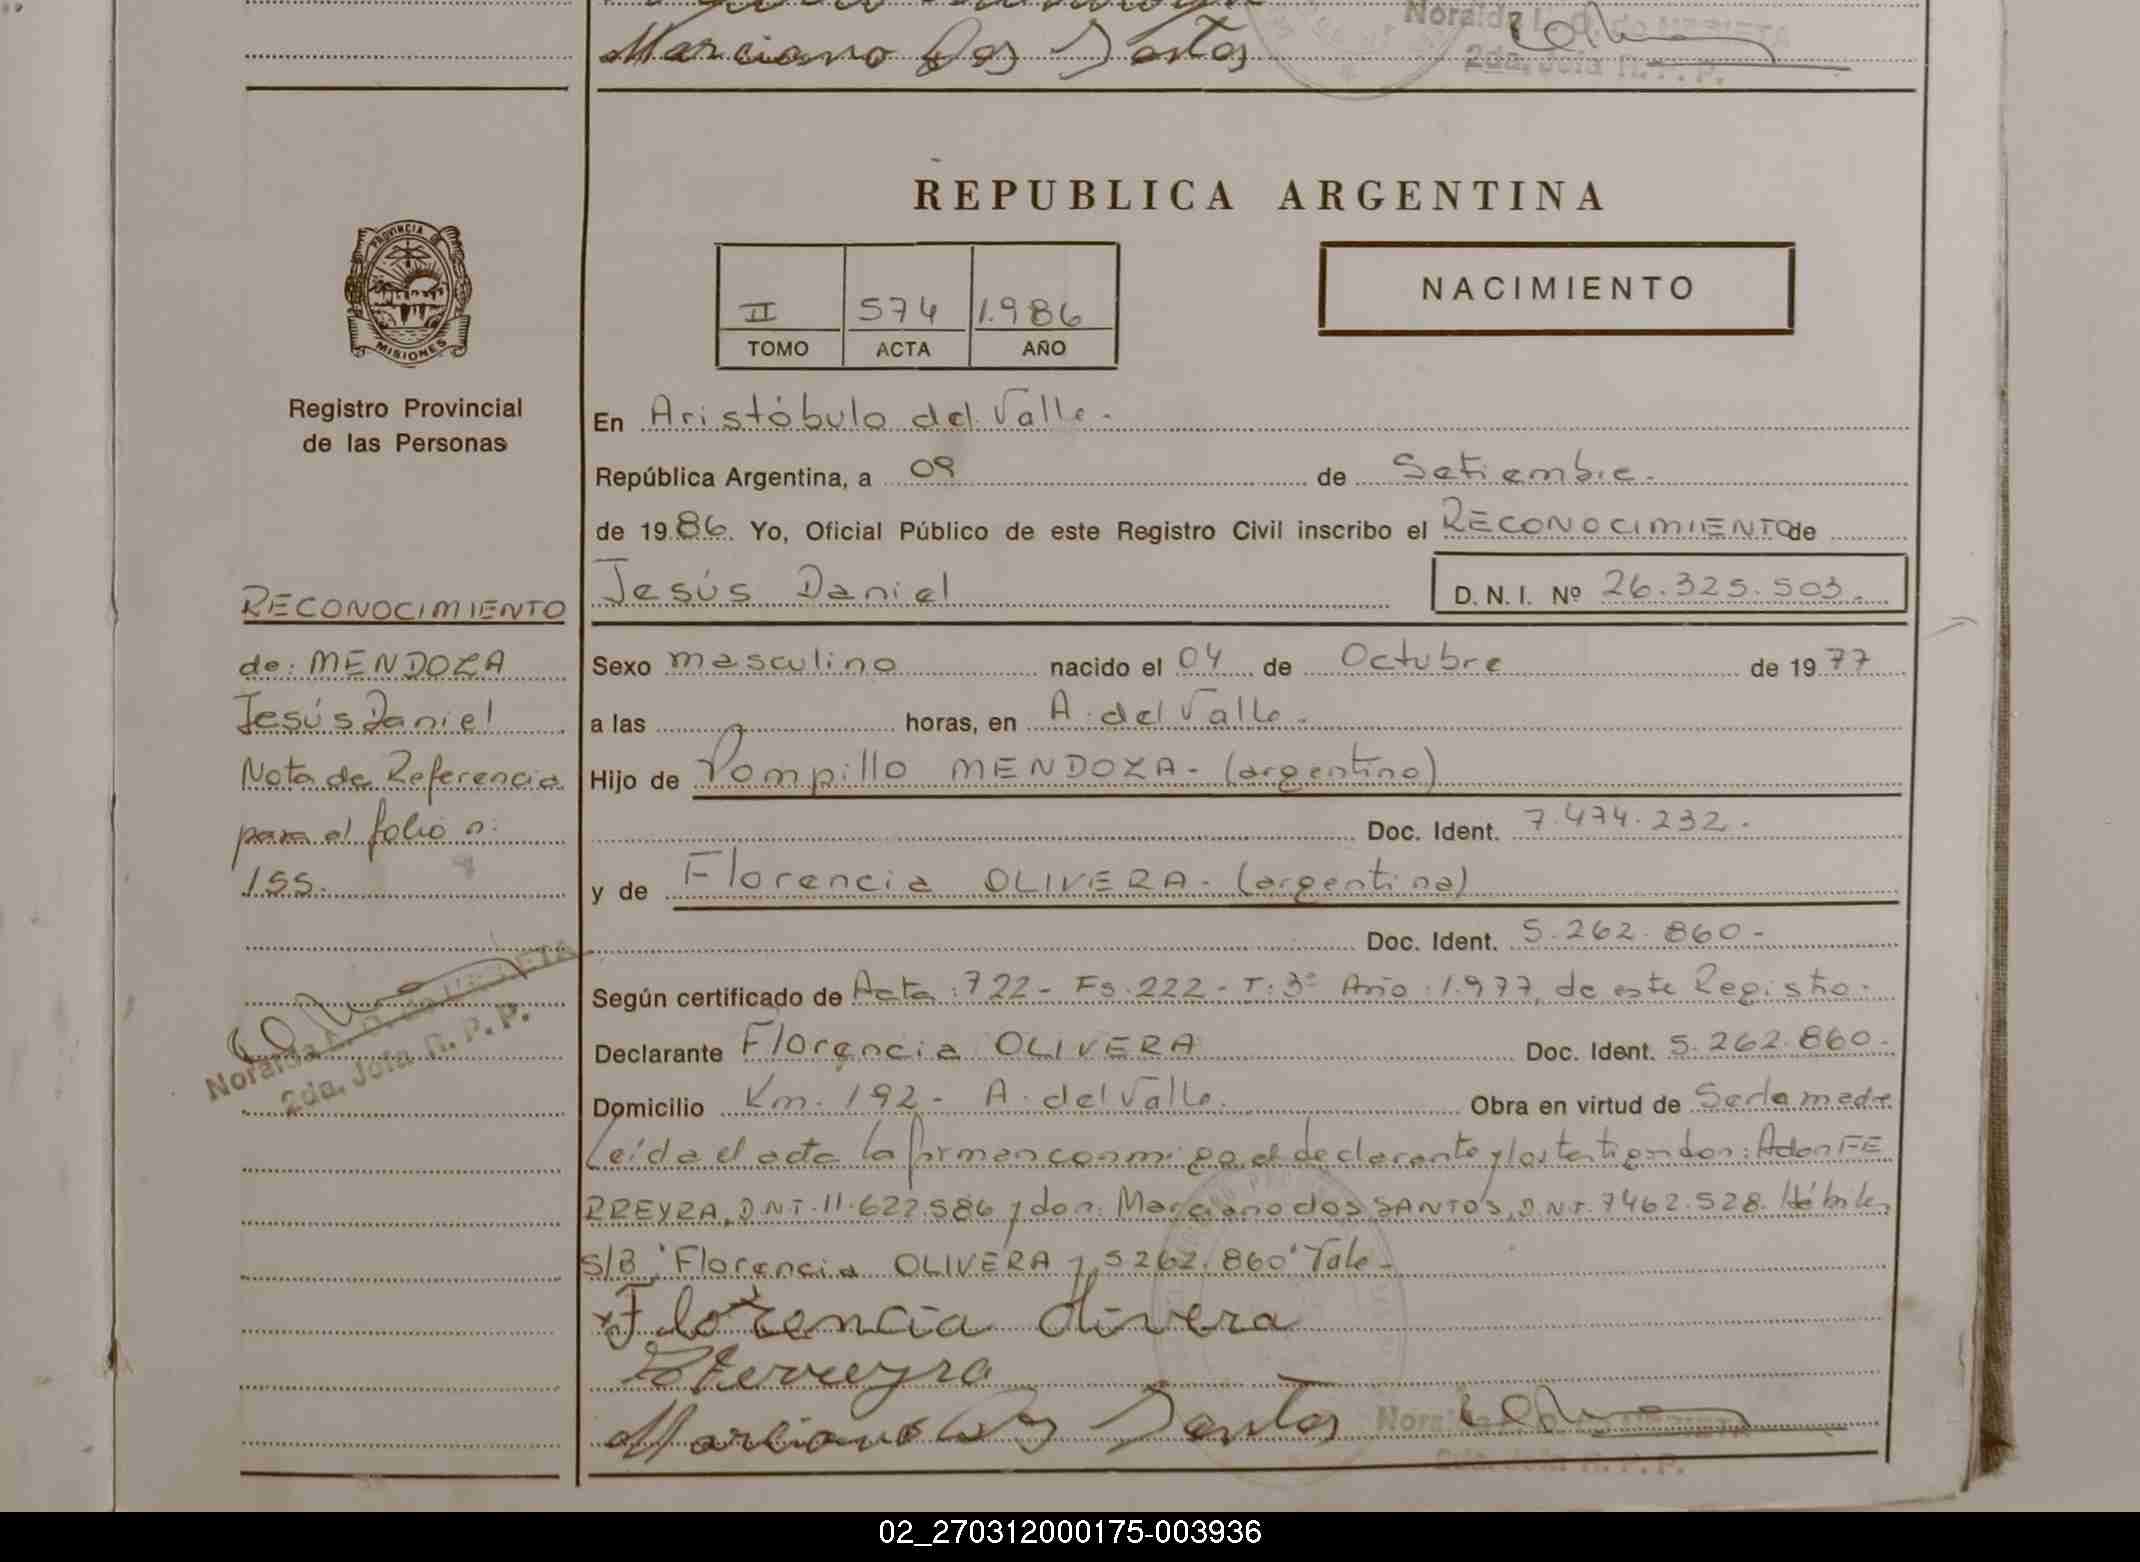 Marciano Dos Santos
Noralda
2da. Jefa R.P.P.
REPUBLICA ARGENTINA
PROVINCIA DE
MISIONES
II 574 1.986
TOMO ACTA AÑO
NACIMIENTO
Registro Provincial
de las Personas
En Aristóbulo del Valle.
República Argentina, a 09 de Setiembre.
de 1986. Yo, Oficial Público de este Registro Civil inscribo el RECONOCIMIENTO de
Jesús Daniel D.N.I. Nº 26.325.503.
Sexo masculino nacido el 04 de Octubre de 1977
a las horas, en A. del Valle.
Hijo de Pompillo MENDOZA - (argentino)
Doc. Ident. 7.474.232.
y de Florencia OLIVERA - (argentina)
Doc. Ident. 5.262.860-
Según certificado de Acta: 722 - Fs. 222 - T: 3º Año: 1.977, de este Registro.
Declarante Florencia OLIVERA Doc. Ident. 5.262.860.
Domicilio Km. 192 - A. del Valle. Obra en virtud de Ser la madre
Leída el acta la firman conmigo el declarante y los testigos don: Adon FE
RREYRA, D.N.I. 11.622.586 y don: Marciano dos SANTOS, D.N.I. 7462.528. Hábiles
S/B "Florencia OLIVERA y 5262.860" Vale-
Florencia Olivera
Ferreyra
Marciano Dos Santos
RECONOCIMIENTO
de: MENDOZA
Jesús Daniel
Nota de Referencia
para el folio n:
155.
Noralda
2da. Jefa R.P.P.
02_270312000175-003936